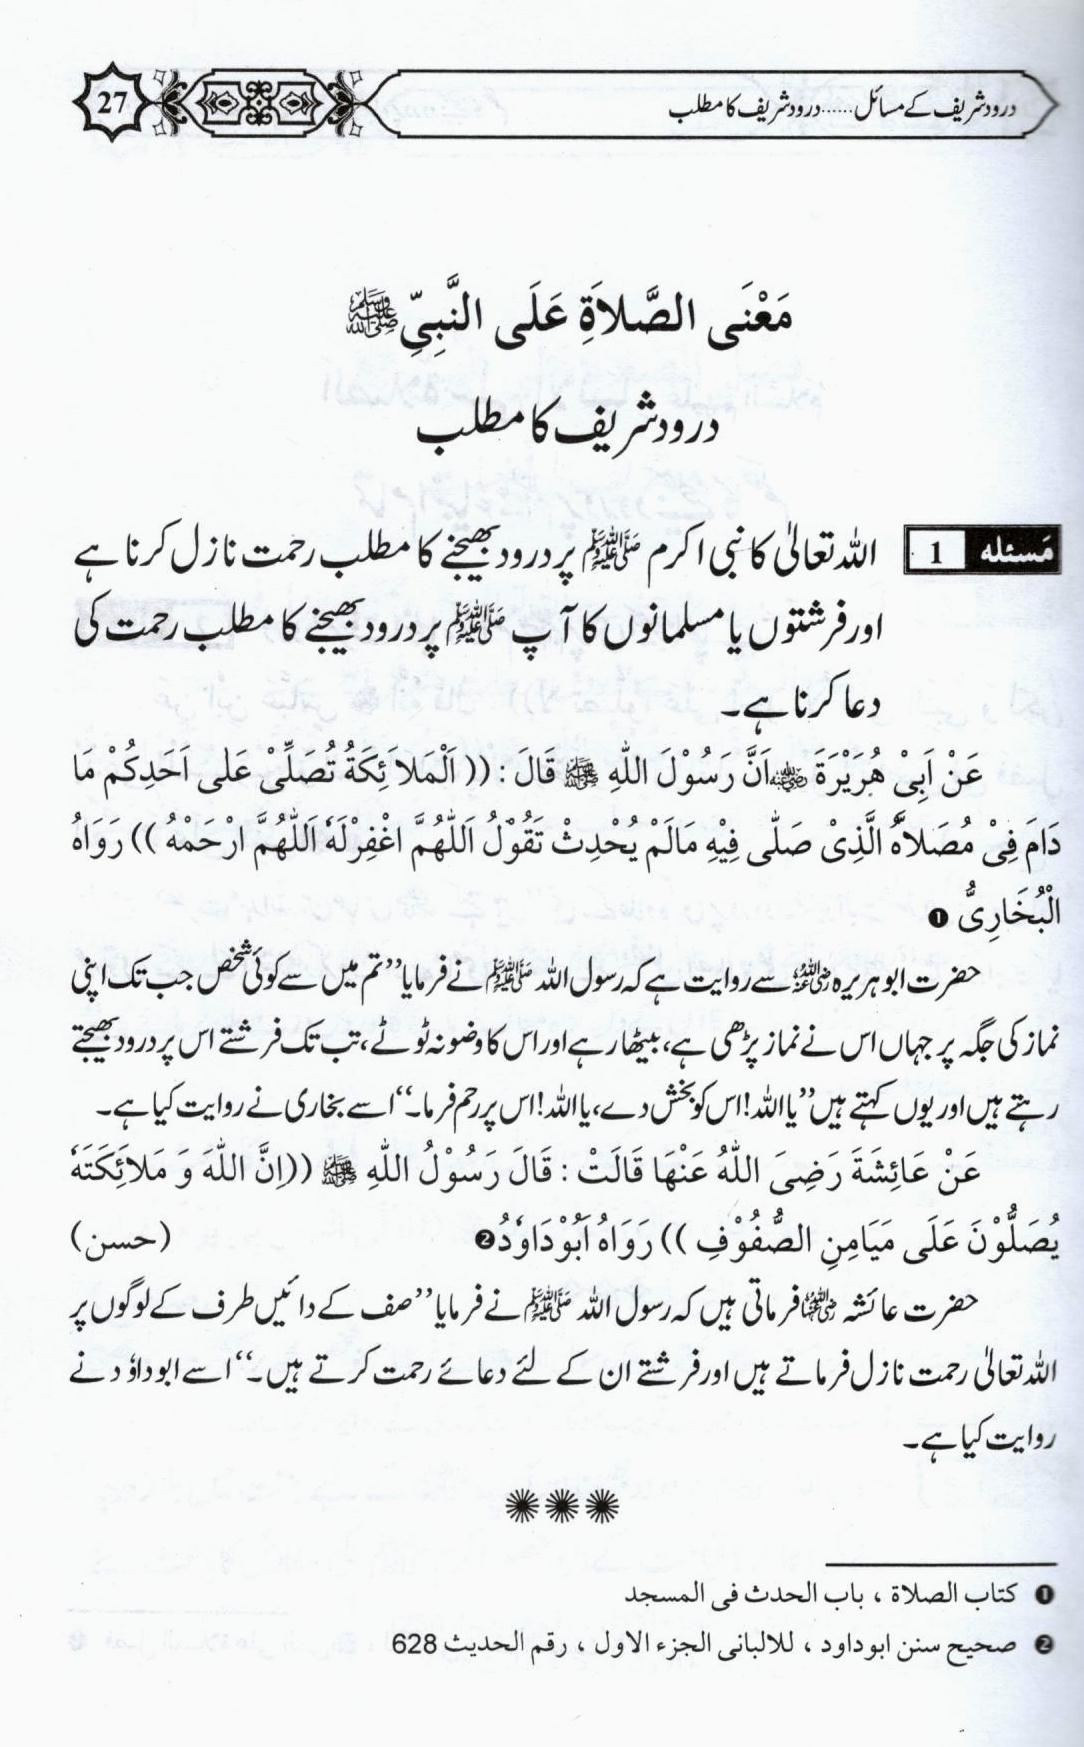 درود شریف کے مسائل......درود شریف کا مطلب
27
مَعْنَى الصَّلاَةِ عَلَى النَّبِيِّ ﷺ
درود شریف کا مطلب
مَسئله 1 اللہ تعالیٰ کا نبی اکرم ﷺ پر درود بھیجنے کا مطلب رحمت نازل کرنا ہے
اور فرشتوں یا مسلمانوں کا آپ ﷺ پر درود بھیجنے کا مطلب رحمت کی
دعا کرنا ہے۔
عَنْ اَبِیْ هُرَيْرَةَ ؓ اَنَّ رَسُوْلَ اللهِ ﷺ قَالَ : (( اَلْمَلاَئِكَةُ تُصَلِّىْ عَلٰى اَحَدِكُمْ مَا
دَامَ فِیْ مُصَلاَّهُ الَّذِیْ صَلّٰى فِيْهِ مَالَمْ يُحْدِثْ تَقُوْلُ اَللّٰهُمَّ اغْفِرْلَهٗ اَللّٰهُمَّ ارْحَمْهُ )) رَوَاهُ
الْبُخَارِىُّ ❶
حضرت ابوہریرہ ؓ سے روایت ہے کہ رسول اللہ ﷺ نے فرمایا ’’تم میں سے کوئی شخص جب تک اپنی
نماز کی جگہ پر جہاں اس نے نماز پڑھی ہے، بیٹھا رہے اور اس کا وضو نہ ٹوٹے، تب تک فرشتے اس پر درود بھیجتے
رہتے ہیں اور یوں کہتے ہیں ’’یا اللہ! اس کو بخش دے، یا اللہ! اس پر رحم فرما۔‘‘ اسے بخاری نے روایت کیا ہے۔
عَنْ عَائِشَةَ رَضِىَ اللّٰهُ عَنْهَا قَالَتْ : قَالَ رَسُوْلُ اللّٰهِ ﷺ ((اِنَّ اللّٰهَ وَ مَلاَئِكَتَهٗ
يُصَلُّوْنَ عَلَى مَيَامِنِ الصُّفُوْفِ )) رَوَاهُ اَبُوْدَاوٗدُ ❷ (حسن)
حضرت عائشہ ؓ فرماتی ہیں کہ رسول اللہ ﷺ نے فرمایا ’’صف کے دائیں طرف کے لوگوں پر
اللہ تعالیٰ رحمت نازل فرماتے ہیں اور فرشتے ان کے لئے دعائے رحمت کرتے ہیں۔‘‘ اسے ابوداؤد نے
روایت کیا ہے۔
❶ كتاب الصلاة ، باب الحدث فى المسجد
❷ صحيح سنن ابوداود ، للالبانى الجزء الاول ، رقم الحديث 628